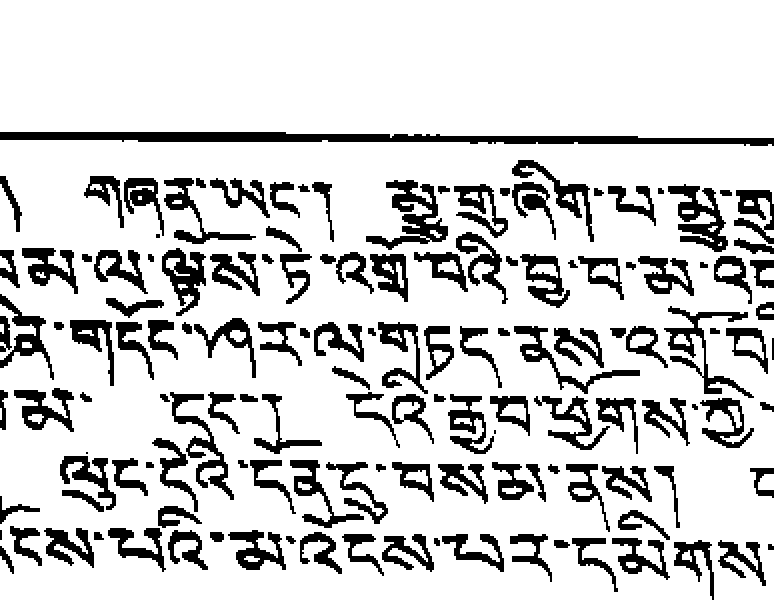 ། གཞན་ཡང་། མྱུ་གུ་ཞིག་པ་མྱུ་གུ
མ་ལ་ལྟོས་ཏེ་འགྲོ་བའི་བྱ་བ་མ་འད
གདོང་ཤར་ལ་གཏང་ནས་འགྲོ་བ
མ་ དང་། དེའི་རྒྱབ་ཕྱོགས་ཀྱི་
ལུང་དེའི་དོན་དུ་བསམ་ནས།
ངས་པའི་མ་འོངས་པར་དམིགས་